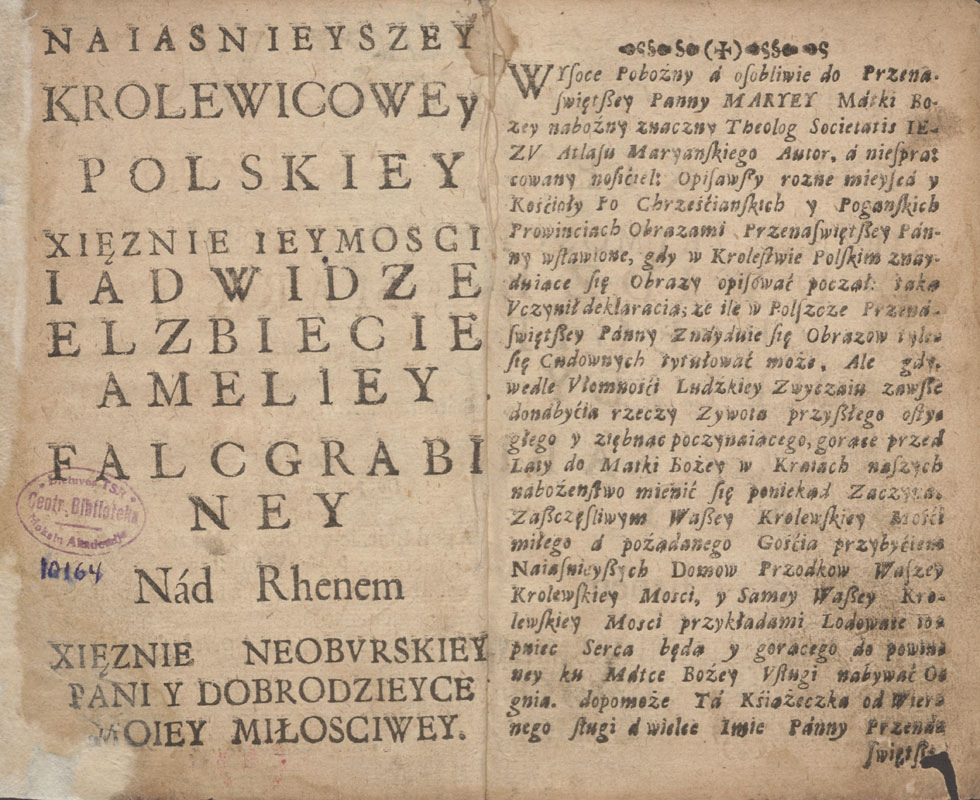 NAIASNIEYSZEY
KROLEWICOWEy
POLSKIEY
XIĘZNIE IEYMOSCI
IADWIDZE
ELZBIECIE
AMELIEY
FALCGRABI
NEY
Nád Rhenem
XIĘZNIE NEOBVRSKIEY
PANI Y DOBRODZIEYCE
MOIEY MIŁOSCIWEY.
Lietuvos TSR
Centr. Biblioteka
Mokslų Akademija
10164
WYſoce Pobożny á oſobliwie do Przena-
świętſzey Panny MARYEY Mátki Bo-
zey nabożny znaczny Theolog Societatis IE-
ZV Atlaſu Maryanſkiego Autor, á nieſpra:
cowany noſićiel: Opiſawſzy rozne mieyſcá y
Kośćioły Po Chrześćianſkich y Poganſkich
Prowinciach Obrazami Przenaświętſzey Pán-
ny wſławione, gdy w Kroleſtwie Polſkim znay-
duiące się Obrazy opiſować począł: taką
Vczynił deklaracią; że ile w Polſzcze Przená-
świętſzey Pánny Znáyduie ſię Obrazow tylko
ſię Cudownych tytułować może. Ale gdy,
wedle Vłomnośći Ludzkiey Zwyczaiu zawſze
donabyćia rzeczy Zywota przyſzłego oſty
głego y ziębnąc poczynaiącego, gorące przed
Laty do Matki Bożey w Kraiach naſzych
nabożenſtwo mienić ſię poniekąd Zaczyna.
Zaſzczęśliwym Waſzey Krolewſkiey Mośći
miłego á pożądanego Gośćia przybyćiem
Naiaśnieyſzych Domow Przodkow Waſzey
Krolewſkiey Mosci, y Samey Waſzey Kro-
lewſkiey Mosci przykładami Lodowate to
pniec Serca będą y gorącego do powin
ney ku Mátce Bożey Vſługi nabywáć O
gnia. dopomoże Tá Kśiążeczka od Wier
nego ſługi á wielce Imie Pánny Przená
ſwiętſz